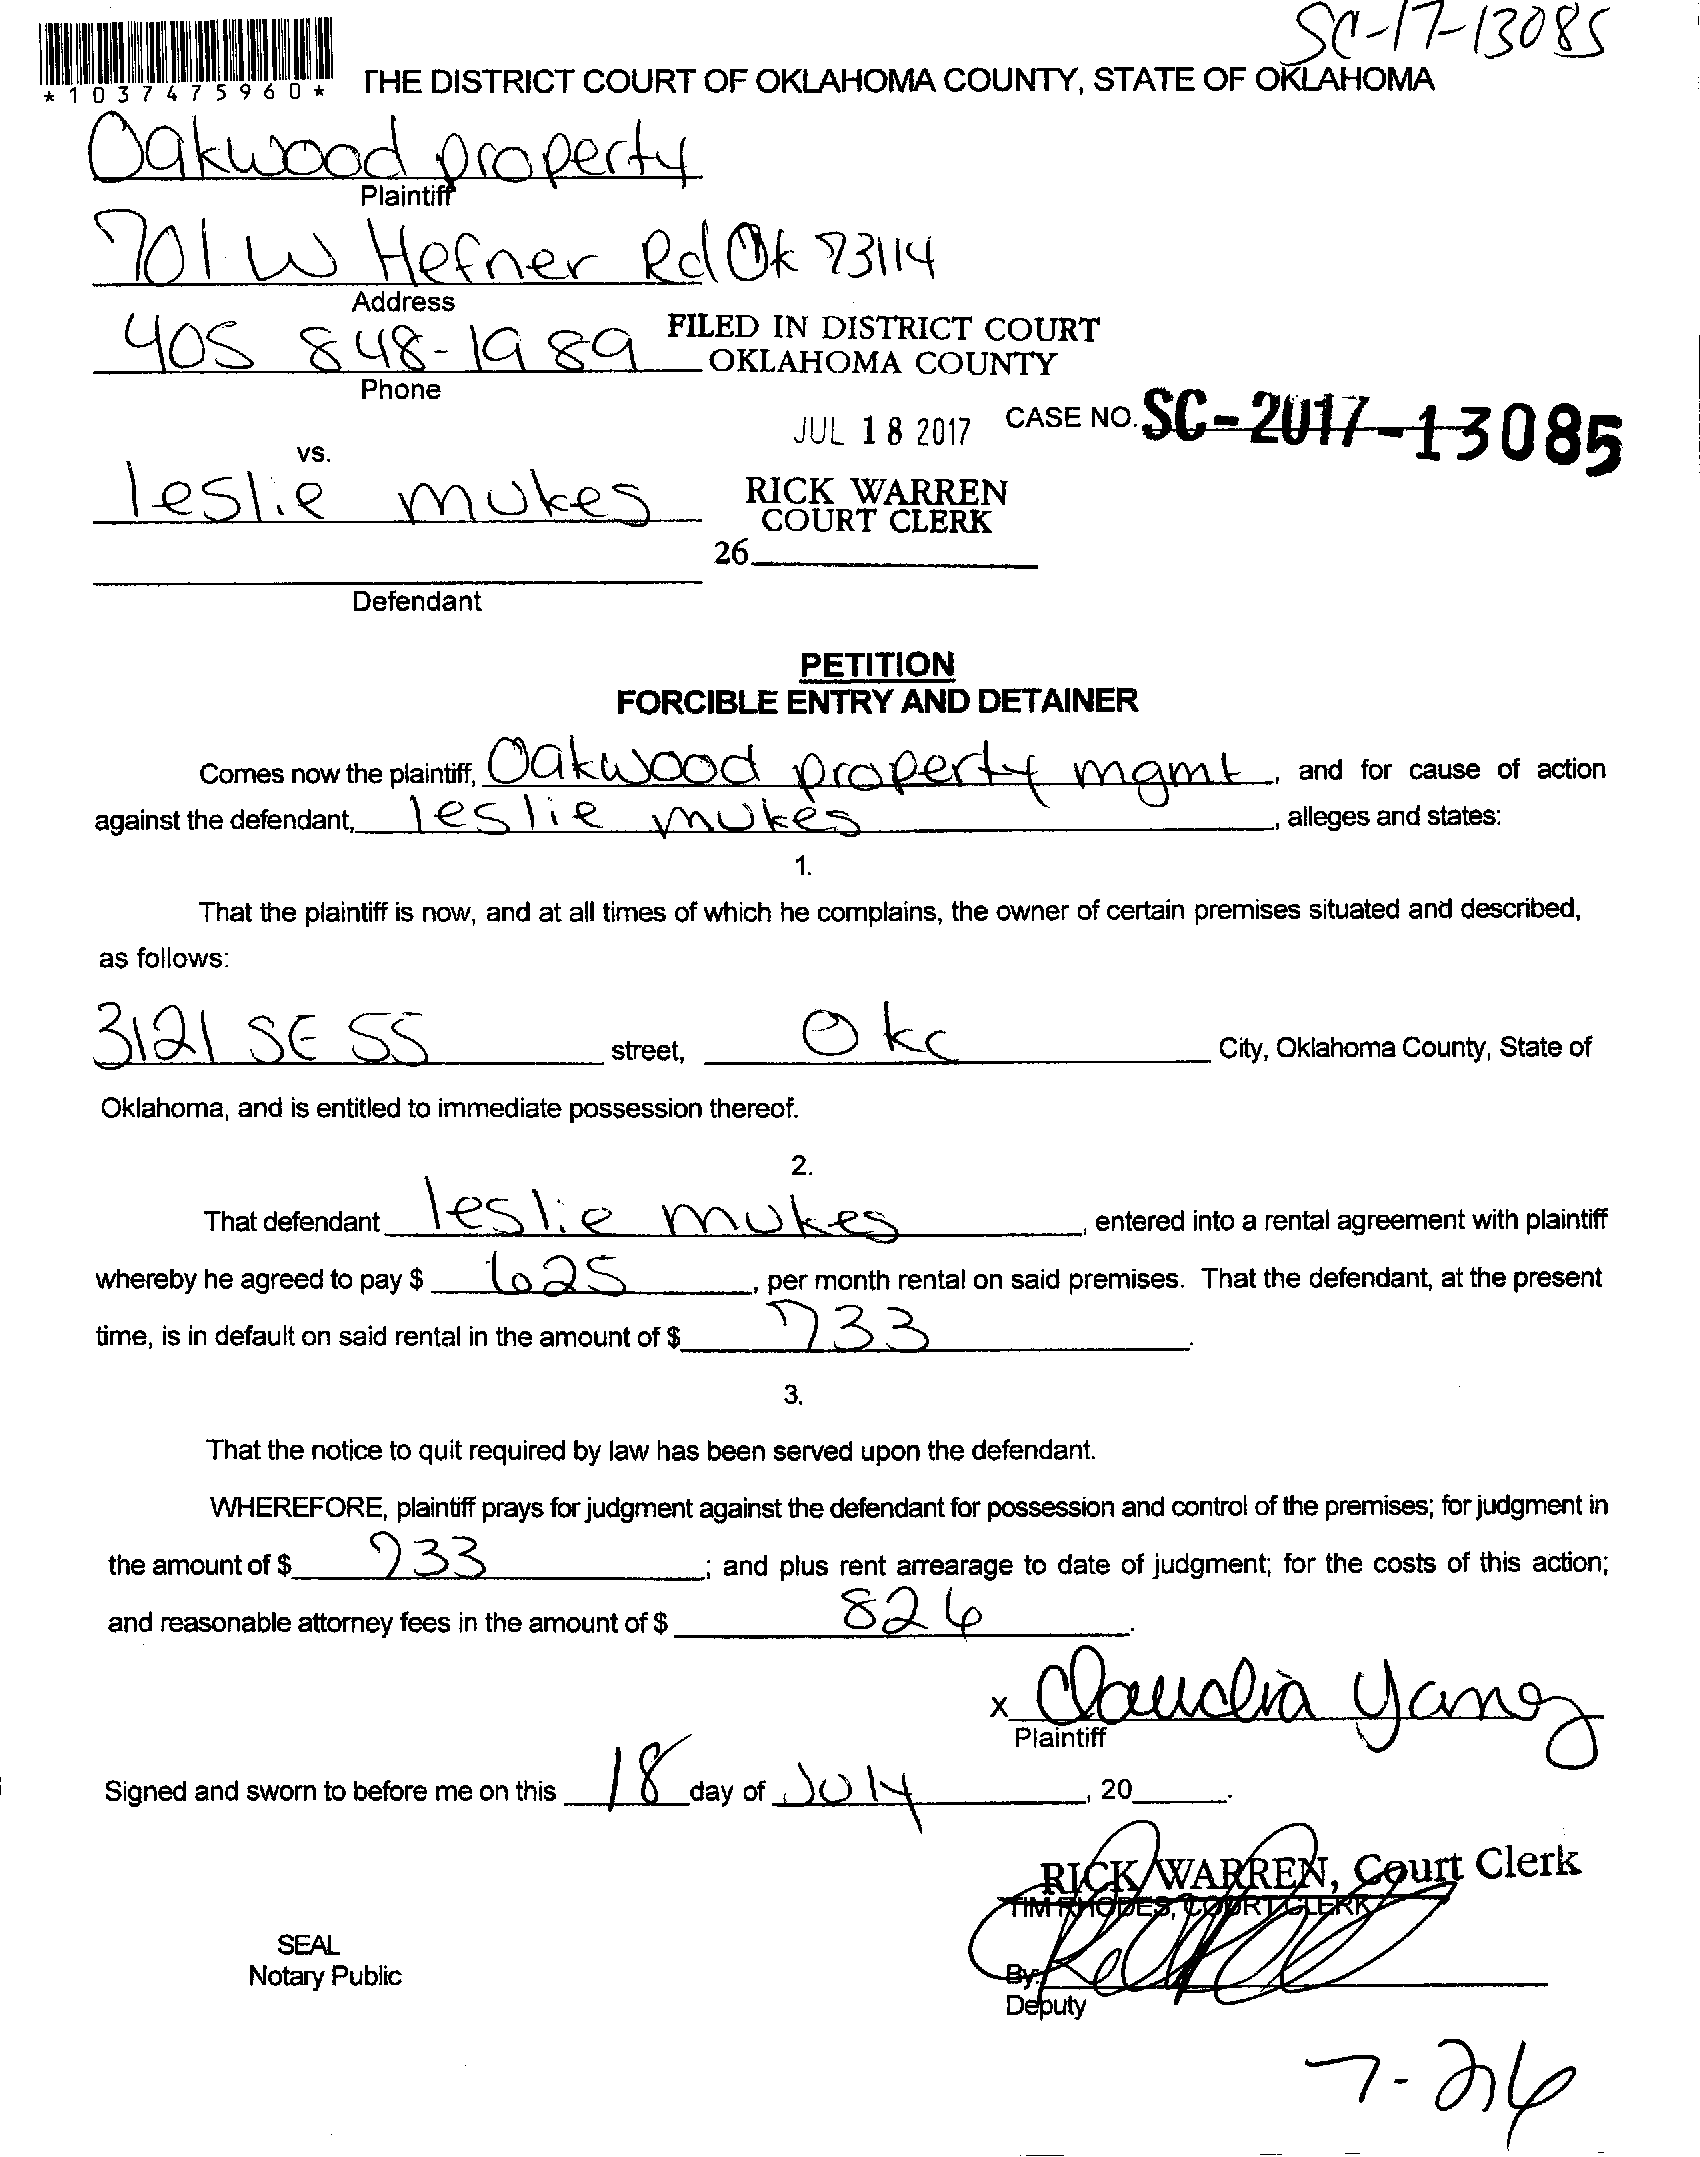 SC-17-13085
*1037475960*
THE DISTRICT COURT OF OKLAHOMA COUNTY, STATE OF OKLAHOMA
Oakwood property
Plaintiff
701 W Hefner Rd Ok 73114
Address
405 848-1989
Phone
FILED IN DISTRICT COURT
OKLAHOMA COUNTY
JUL 18 2017
CASE NO. SC-2017-13085
vs.
leslie mukes
RICK WARREN
COURT CLERK
26
Defendant
PETITION
FORCIBLE ENTRY AND DETAINER
Comes now the plaintiff, Oakwood property mgmt, and for cause of action
against the defendant, leslie mukes, alleges and states:
1.
That the plaintiff is now, and at all times of which he complains, the owner of certain premises situated and described,
as follows:
3121 SE 55 street, Okc City, Oklahoma County, State of
Oklahoma, and is entitled to immediate possession thereof.
2.
That defendant leslie mukes, entered into a rental agreement with plaintiff
whereby he agreed to pay $ 625, per month rental on said premises. That the defendant, at the present
time, is in default on said rental in the amount of $ 733.
3.
That the notice to quit required by law has been served upon the defendant.
WHEREFORE, plaintiff prays for judgment against the defendant for possession and control of the premises; for judgment in
the amount of $ 733; and plus rent arrearage to date of judgment; for the costs of this action;
and reasonable attorney fees in the amount of $ 826.
x Claudia Yanez
Plaintiff
Signed and sworn to before me on this 18 day of July, 20.
RICK WARREN, Court Clerk
TIM RHODES, COURT CLERK
SEAL
Notary Public
By:
Deputy
7-26